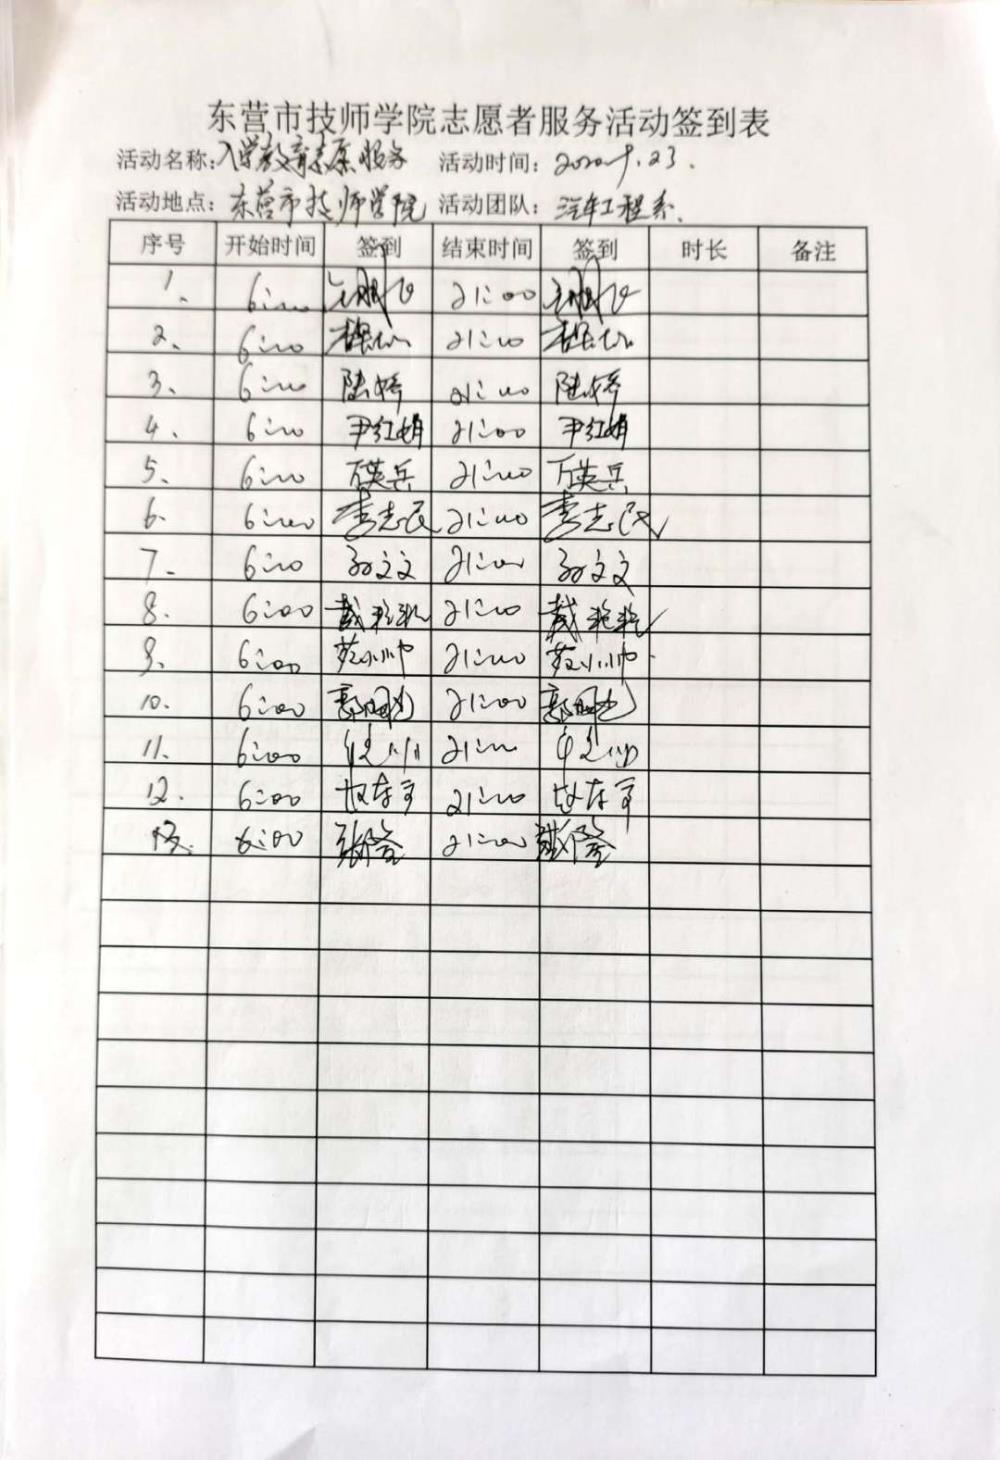 东营市技师学院志愿者服务活动签到表
活动名称:入学教育志愿服务 活动时间:2020.9.23.
活动地点:东营市技师学院 活动团队:汽车工程系.
序号 开始时间 签到 结束时间 签到 时长 备注
1、 6:00 21:00
2、 6:00 21:00
3、 6:00 陆娇 21:00 陆娇
4、 6:00 尹红娟 21:00 尹红娟
5、 6:00 万英兵 21:00 万英兵
6、 6:00 李志民 21:00 李志民
7、 6:00 孙文文 21:00 孙文文
8. 6:00 戴艳艳 21:00 戴艳艳
9、 6:00 苏小帅 21:00 苏小帅
10. 6:00 21:00
11. 6:00 21:00
12. 6:00 21:00
13. 6:00 张隆 21:00 张隆